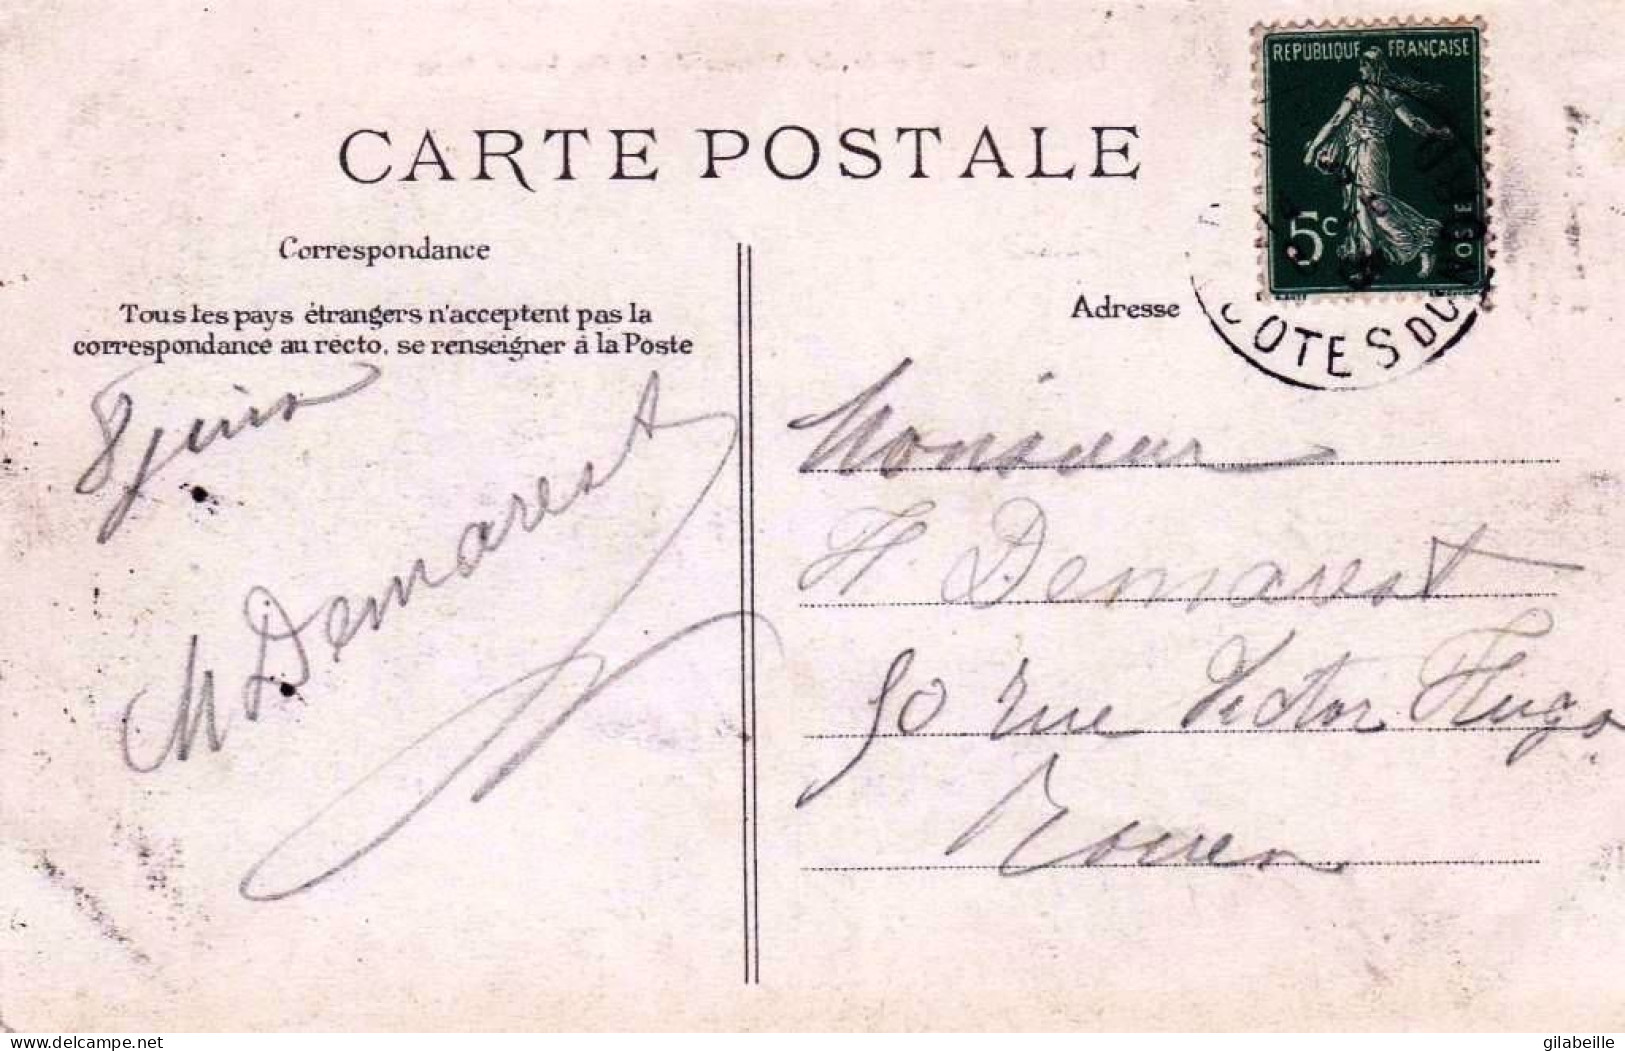 REPUBLIQUE FRANÇAISE
5c
CARTE POSTALE
Correspondance
Tous les pays étrangers n'acceptent pas la
correspondance au recto, se renseigner à la Poste
8 juin
M Demarest
Adresse
COTES DU NORD
Monsieur
H. Demarest
50 rue Victor Hugo
Rouen
delcampe.net
gilabeille